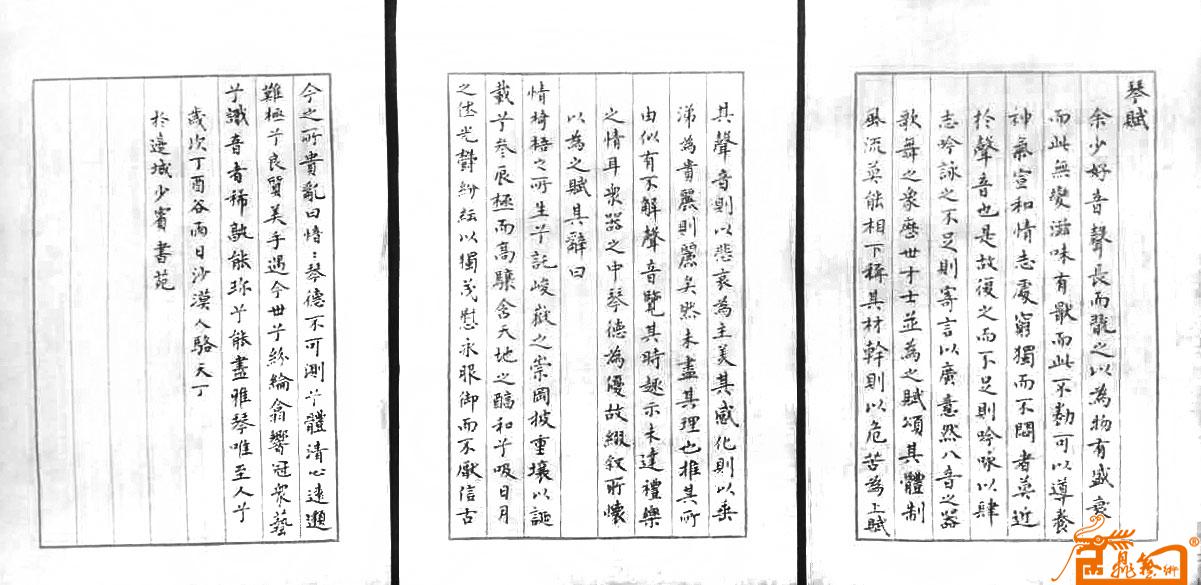 琴賦
余少好音聲長而翫之以為物有盛衰
而此無變滋味有厭而此不勌可以導養
神氣宣和情志處窮獨而不悶者莫近
於聲音也是故復之而不足則吟咏以肆
志吟詠之不足則寄言以廣意然八音之器
歌舞之象歷世才士並為之賦頌其體制
風流莫能相下稱其材幹則以危苦為上賦
其聲音則以悲哀為主美其感化則以垂
涕為貴麗則麗矣然未盡其理也推其所
由似有不解聲音覽其時趣亦未達禮樂
之情耳眾器之中琴德為優故綴敘所懷
以為之賦其辭曰
情琦梧之所生兮託峻嶽之崇岡披重壤以誕
載兮參辰極而高驤含天地之醇和兮吸日月
之休光鬱紛紜以獨茂慰永服御而不厭信古
今之所貴亂曰愔:琴德不可測兮體清心遠邈
難極兮良質美手遇今世兮紛綸翕響冠眾藝
兮識音者稀孰能珍兮能盡雅琴唯至人兮
歲次丁酉谷雨日沙漠人駱天丁
於邊城少賓書苑